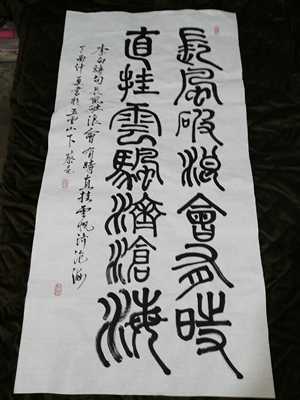 長風破浪會有時
直挂雲颿濟滄海
李白詩句長風破浪會有時直挂雲帆濟滄海
丁酉仲夏書於五雲山下